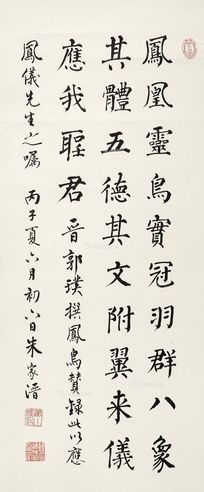 鳳凰靈鳥實冠羽群八象
其體五德其文附翼来儀
應我聖君晋郭璞撰鳳鳥贊録此以應
鳳儀先生之囑丙子夏六月初八日朱家溍